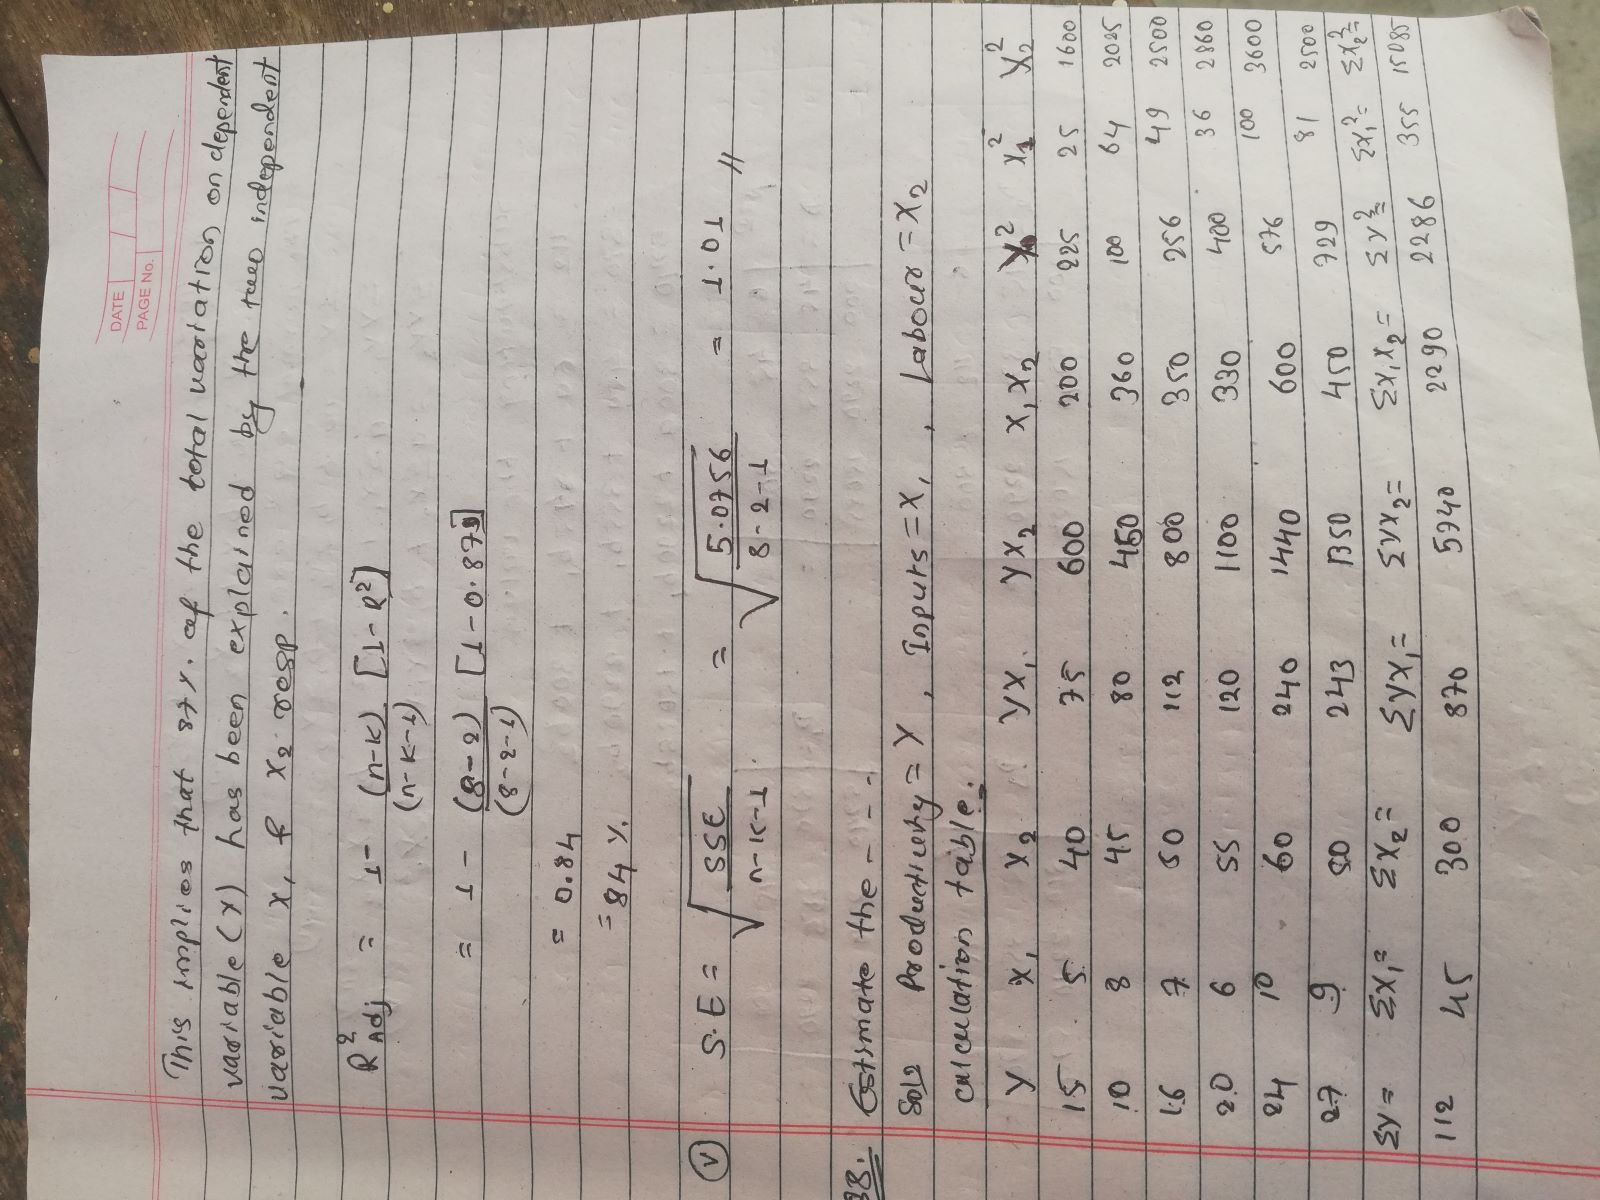 DATE
PAGE No.
This implies that 87%. of the total variation on dependent
variable (Y) has been explained by the two independent
variable X₁ & X₂ resp.
R²Adj = 1- (n-K)/(n-K-1) [1-R²]
= 1 - (8-2)/(8-2-1) [1-0.87]
= 0.84
= 84 %.
(V) S.E = √(SSE/(n-K-1)) = √(5.0756/(8-2-1)) = 1.01 //
38. Estimate the - - -
Sol2 Productivity = Y, Inputs = X₁, Labour = X₂
calculation table.
Y X₁ X₂ YX₁ YX₂ X₁X₂ Y² X₁² X₂²
15 5 40 75 600 200 225 25 1600
10 8 45 80 450 360 100 64 2025
16 7 50 112 800 350 256 49 2500
20 6 55 120 1100 330 400 36 2860
24 10 60 240 1440 600 576 100 3600
27 9 50 243 1350 450 729 81 2500
ΣY= ΣX₁= ΣX₂= ΣYX₁= ΣYX₂= ΣX₁X₂= ΣY²= ΣX₁²= ΣX₂²=
112 45 300 870 5740 2290 2286 355 15085